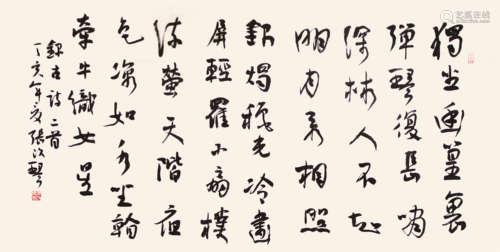 獨坐幽篁裏
彈琴復長嘯
深林人不知
明月來相照
銀燭秋光冷畫
屏輕羅小扇撲
流螢天階夜
色涼如水坐看
牽牛織女星
錄古詩二首
丁亥年夏張改琴